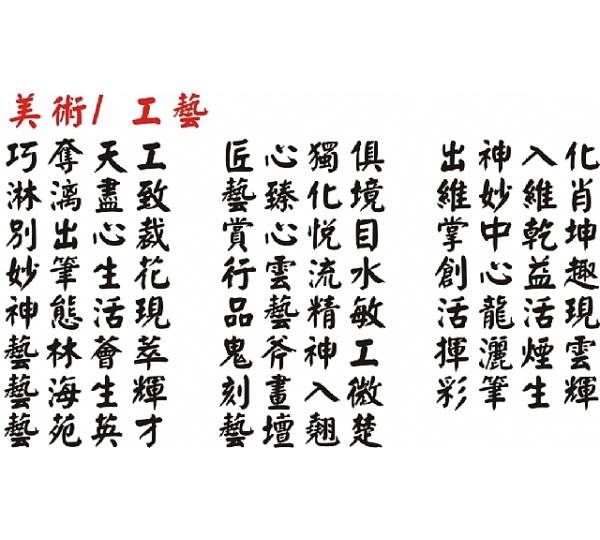 美術/ 工藝
巧奪天工 匠心獨俱 出神入化
淋漓盡致 藝臻化境 維妙維肖
別出心裁 賞心悅目 掌中乾坤
妙筆生花 行雲流水 創心益趣
神態活現 品藝精敏 活龍活現
藝林薈萃 鬼斧神工 揮灑煙雲
藝海生輝 刻畫入微 彩筆生輝
藝苑英才 藝壇翹楚